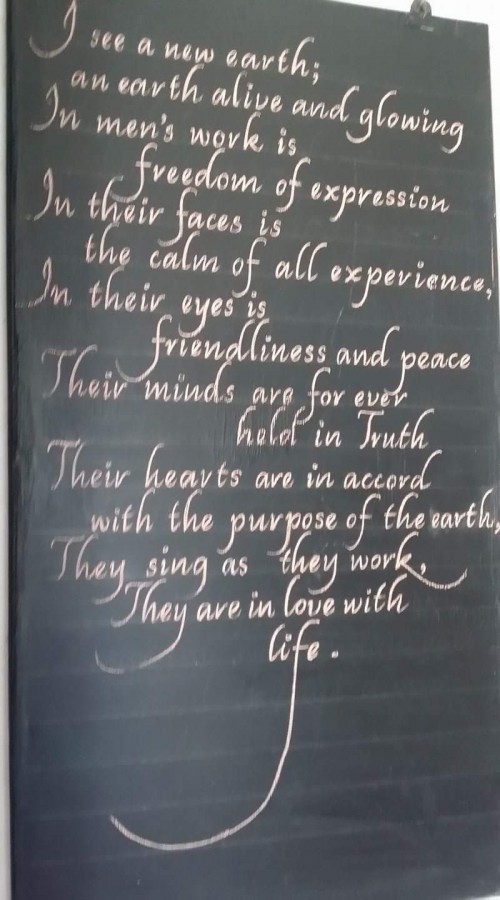 I see a new earth;
an earth alive and glowing
In men's work is
freedom of expression
In their faces is
the calm of all experience,
In their eyes is
friendliness and peace
Their minds are for ever
held in Truth
Their hearts are in accord
with the purpose of the earth,
They sing as they work,
They are in love with
life.